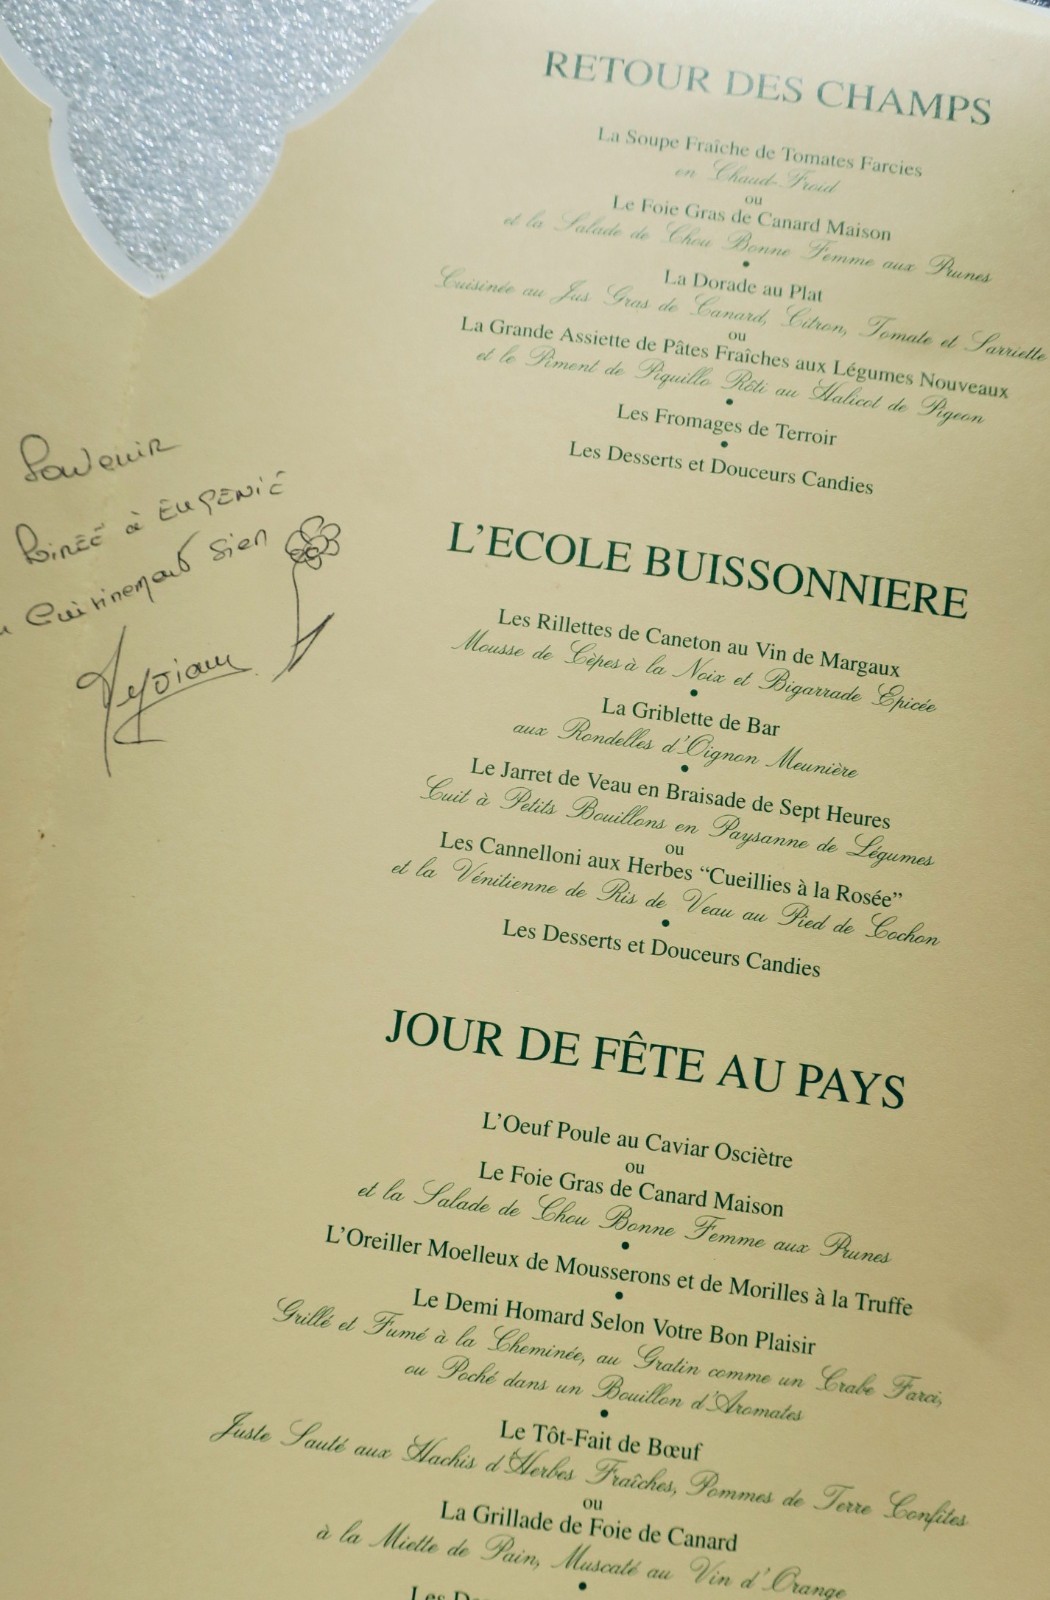 RETOUR DES CHAMPS
La Soupe Fraîche de Tomates Farcies
en Chaud-Froid
ou
Le Foie Gras de Canard Maison
et la Salade de Chou Bonne Femme aux Prunes
•
La Dorade au Plat
Cuisinée au Jus Gras de Canard, Citron, Tomate et Sarriette
ou
La Grande Assiette de Pâtes Fraîches aux Légumes Nouveaux
et le Piment de Piquillo Rôti au Halicot de Pigeon
•
Les Fromages de Terroir
•
Les Desserts et Douceurs Candies
Souvenir
Soirée à EUGENIE
Cuisinement sien
L'ECOLE BUISSONNIERE
Les Rillettes de Caneton au Vin de Margaux
Mousse de Cèpes à la Noix et Bigarrade Epicée
•
La Griblette de Bar
aux Rondelles d'Oignon Meunière
•
Le Jarret de Veau en Braisade de Sept Heures
Cuit à Petits Bouillons en Paysanne de Légumes
ou
Les Cannelloni aux Herbes “Cueillies à la Rosée”
et la Vénitienne de Ris de Veau au Pied de Cochon
•
Les Desserts et Douceurs Candies
JOUR DE FÊTE AU PAYS
L'Oeuf Poule au Caviar Osciètre
ou
Le Foie Gras de Canard Maison
et la Salade de Chou Bonne Femme aux Prunes
•
L'Oreiller Moelleux de Mousserons et de Morilles à la Truffe
•
Le Demi Homard Selon Votre Bon Plaisir
Grillé et Fumé à la Cheminée, au Gratin comme un Crabe Farci,
ou Poché dans un Bouillon d'Aromates
•
Le Tôt-Fait de Bœuf
Juste Sauté aux Hachis d'Herbes Fraîches, Pommes de Terre Confites
ou
La Grillade de Foie de Canard
à la Miette de Pain, Muscaté au Vin d'Orange
•
Les